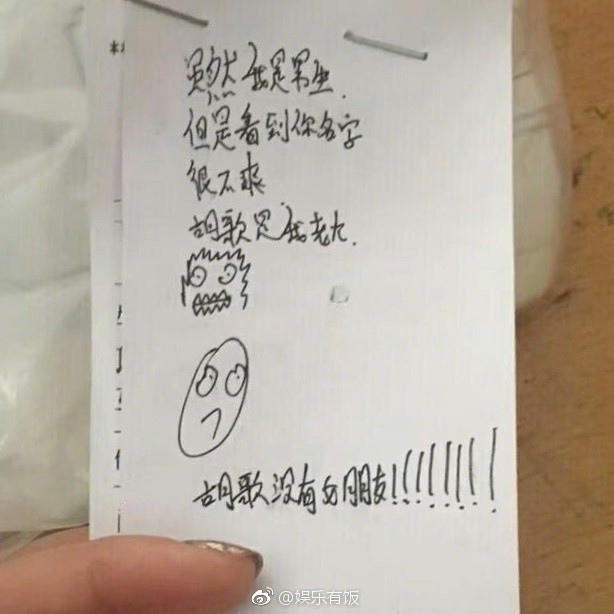 虽然我是男生.
但是看到你名字
很不爽.
胡歌是我老大.
胡歌没有女朋友!!!!!!!!
@娱乐有饭